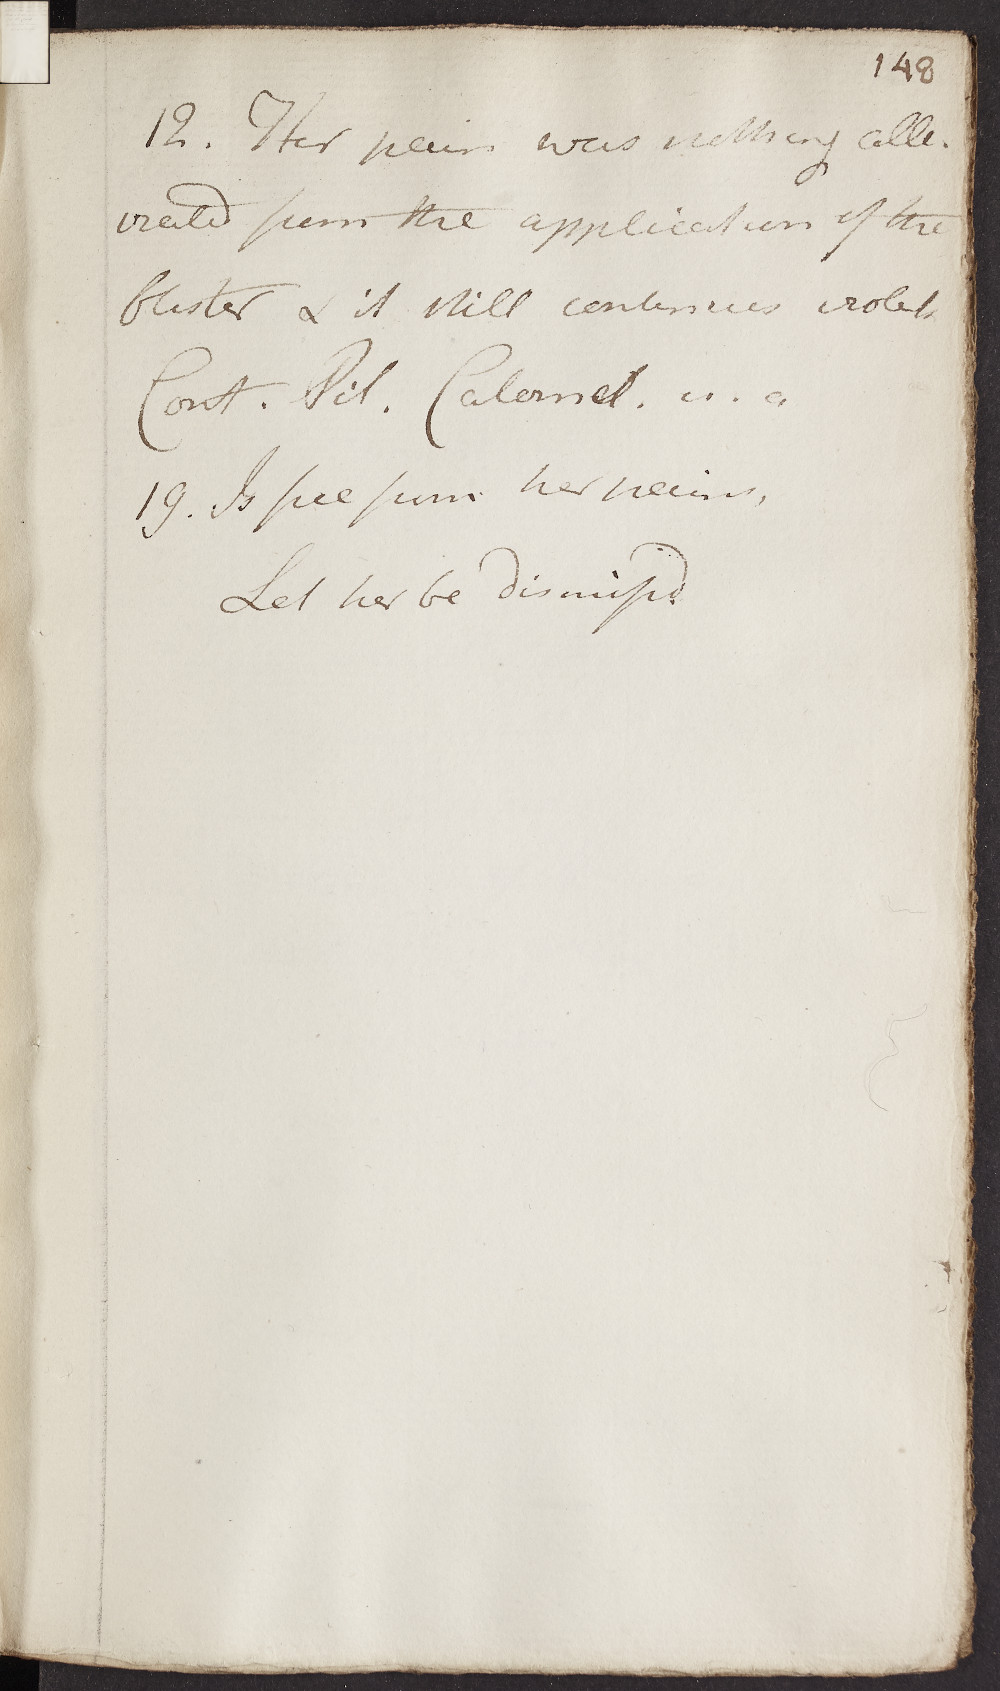 148
12. Her pain was nothing alle-
viated from the application of the
blister & it still continues violent
Cont. Pil. Calomel. u. a
19. Is free from her pains,
Let her be dismiss'd